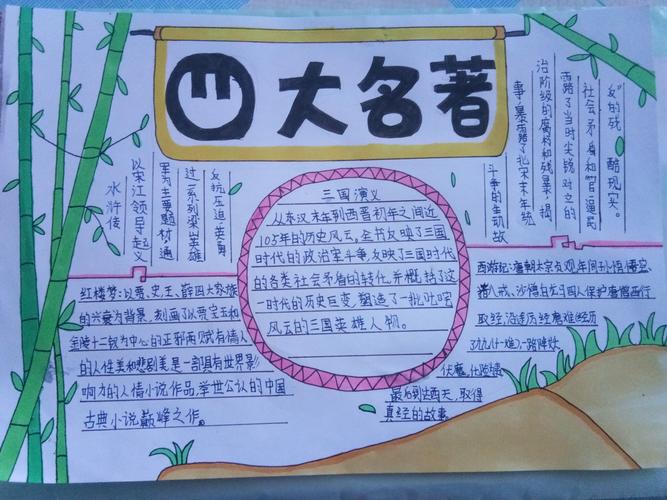 四大名著
水浒传
以宋江领导起义
军为主要题材,通
过一系列梁山英雄
反抗压迫、英勇
斗争的生动故
事,暴露了北宋末年统
治阶级的腐朽和残暴,揭
露了当时尖锐对立的
社会矛盾和官逼民
反"的残 酷现实。
三国演义
从东汉末年到西晋初年之间近
105年的历史风云,全书反映了三国
时代的政治军斗争反映了三国时代
的各类社会矛盾的转化,并概括了这
一时代的历史巨变,塑造了一批叱咤
风云的三国英雄人物。
红楼梦:以贾、史、王、薛四大家族
的兴衰为背景,刻画了以贾宝玉和
金陵十二钗为中心的正邪两赋有情人
的人性美和悲剧美是一部具有世界影
响力的人情小说作品,举世公认的中国
古典小说巅峰之作。
西游记:唐朝太宗贞观年间孙悟空、
猪八戒、沙僧白龙马四人保护唐僧西行
取经,沿途历经磨难(经历
一路降妖
伏魔,化险
最后到达西天,取得
真经的故事